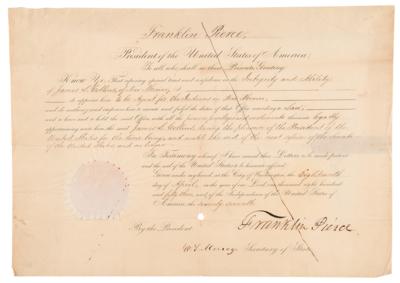 Franklin Pierce,
President of the United States of America,
To all who shall see these Presents, Greeting:
Know Ye, That reposing special trust and confidence in the Integrity and Ability
of James L. Collins of New Mexico, I
do appoint him to be Agent for the Indians in New Mexico
and do authorize and empower him to execute and fulfil the duties of that Office according to Law;
and to have and to hold the said Office with all the powers, privileges and emoluments thereunto legally
appertaining unto him the said James L. Collins, during the pleasure of the President of the
United States for the time being and until the end of the next session of the Senate
of the United States and no longer.
In Testimony whereof I have caused these Letters to be made patent
and the seal of the United States to be hereunto affixed.
Given under my hand at the City of Washington, the Eighteenth
day of April, in the year of our Lord, one thousand eight hundred
and fifty three, and of the Independence of the United States of
America, the seventy seventh.
Franklin Pierce.
By the President
W. L. Marcy Secretary of State.